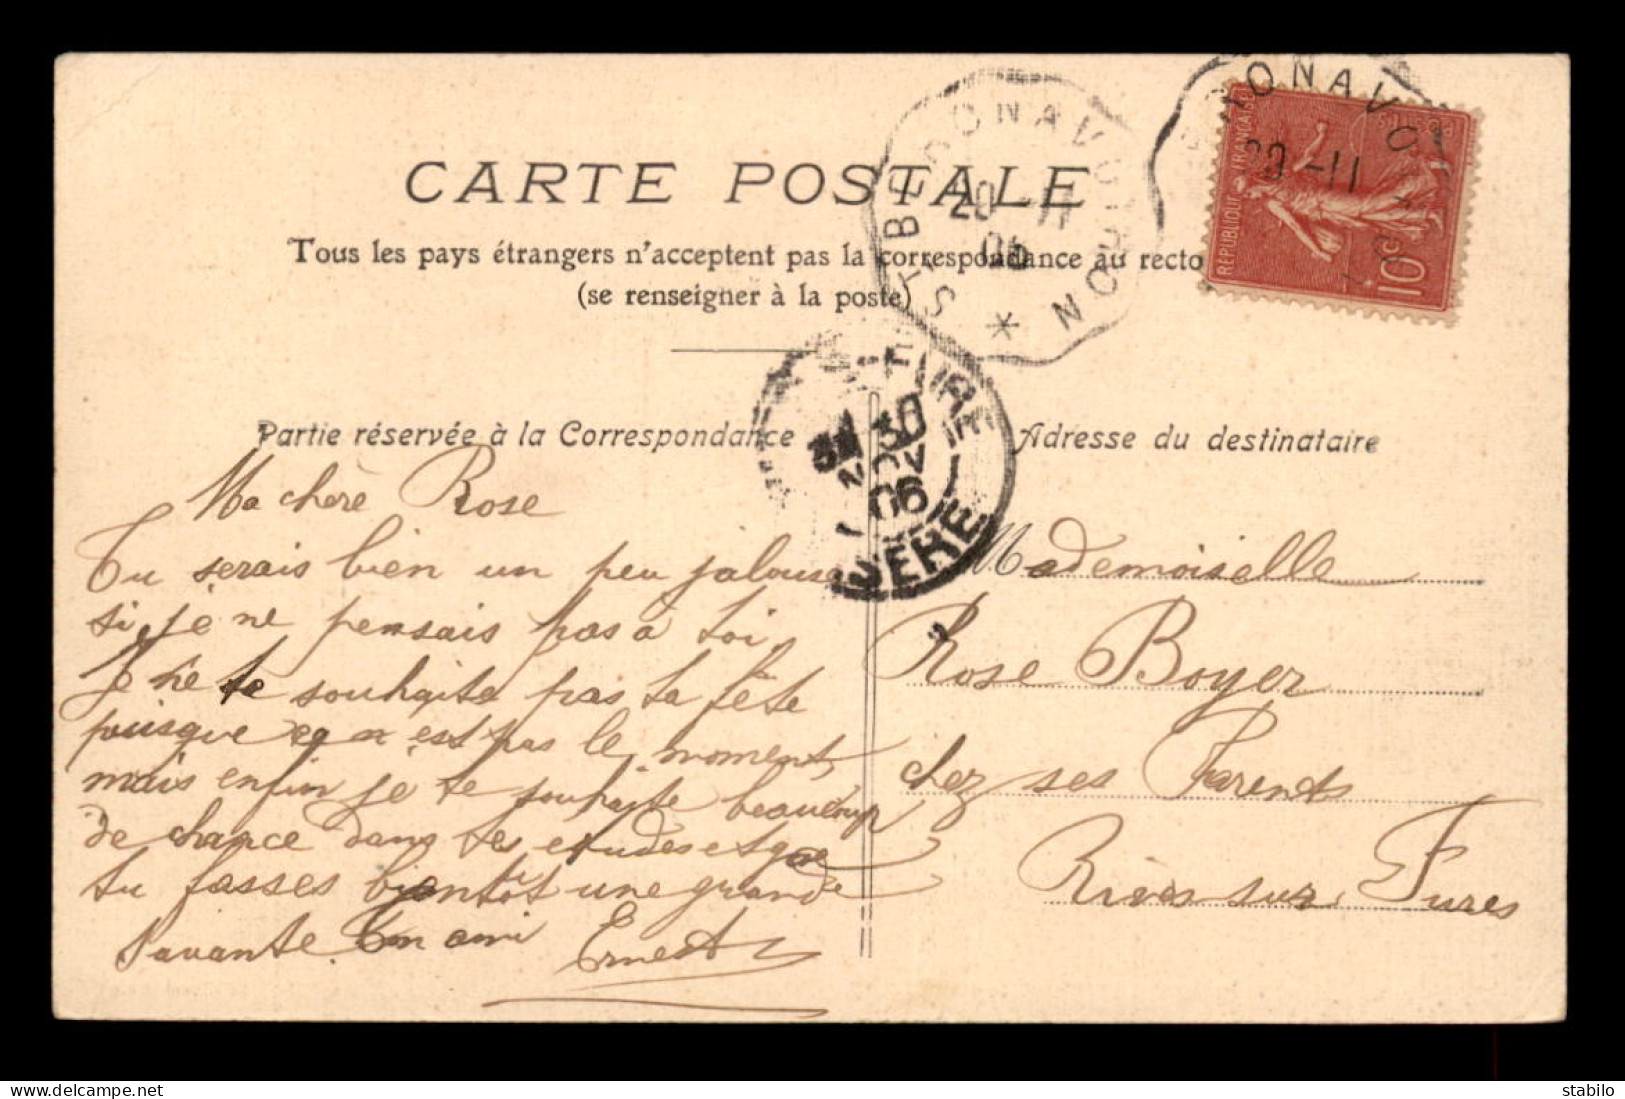 CARTE POSTALE
Tous les pays étrangers n'acceptent pas la correspondance au recto
(se renseigner à la poste)
Partie réservée à la Correspondance
Adresse du destinataire
Ma chère Rose
Tu serais bien un peu jalouse
si je ne pensais pas à toi,
Je ne te souhaite pas ta fête
puisque ce n'est pas le moment,
mais enfin je te souhaite beaucoup
de chance dans tes etudes et que
tu fasses bientôt une grande
savante. Ton ami Ernest
Mademoiselle
Rose Boyer
chez ses Parents
Rives sur Fures
ST BONNAVOIRON
20 -11
06
30
NOV
06
ISÈRE
20 -11
REPUBLIQUE FRANÇAISE
POSTES
10c
stabilo